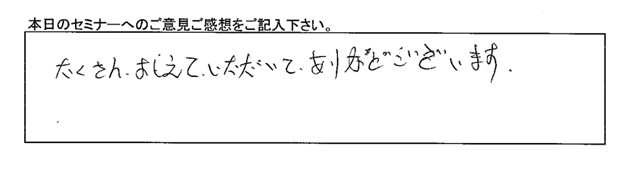 本日のセミナーへのご意見ご感想をご記入下さい。
たくさん、おしえて、いただいて、ありがどございます.